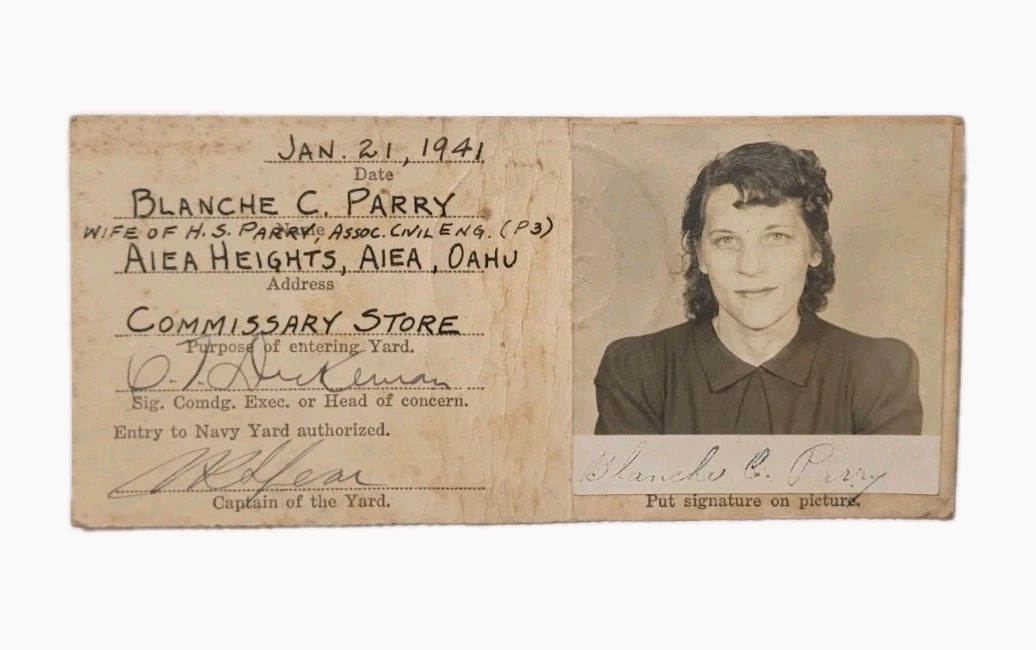 JAN. 21, 1941
Date
BLANCHE C. PARRY
Name
WIFE OF H. S. PARRY, ASSOC. CIVIL ENG. (P3)
AIEA HEIGHTS, AIEA, OAHU
Address
COMMISSARY STORE
Purpose of entering Yard.
Sig. Comdg. Exec. or Head of concern.
Entry to Navy Yard authorized.
Captain of the Yard.
Blanche C. Parry
Put signature on picture.